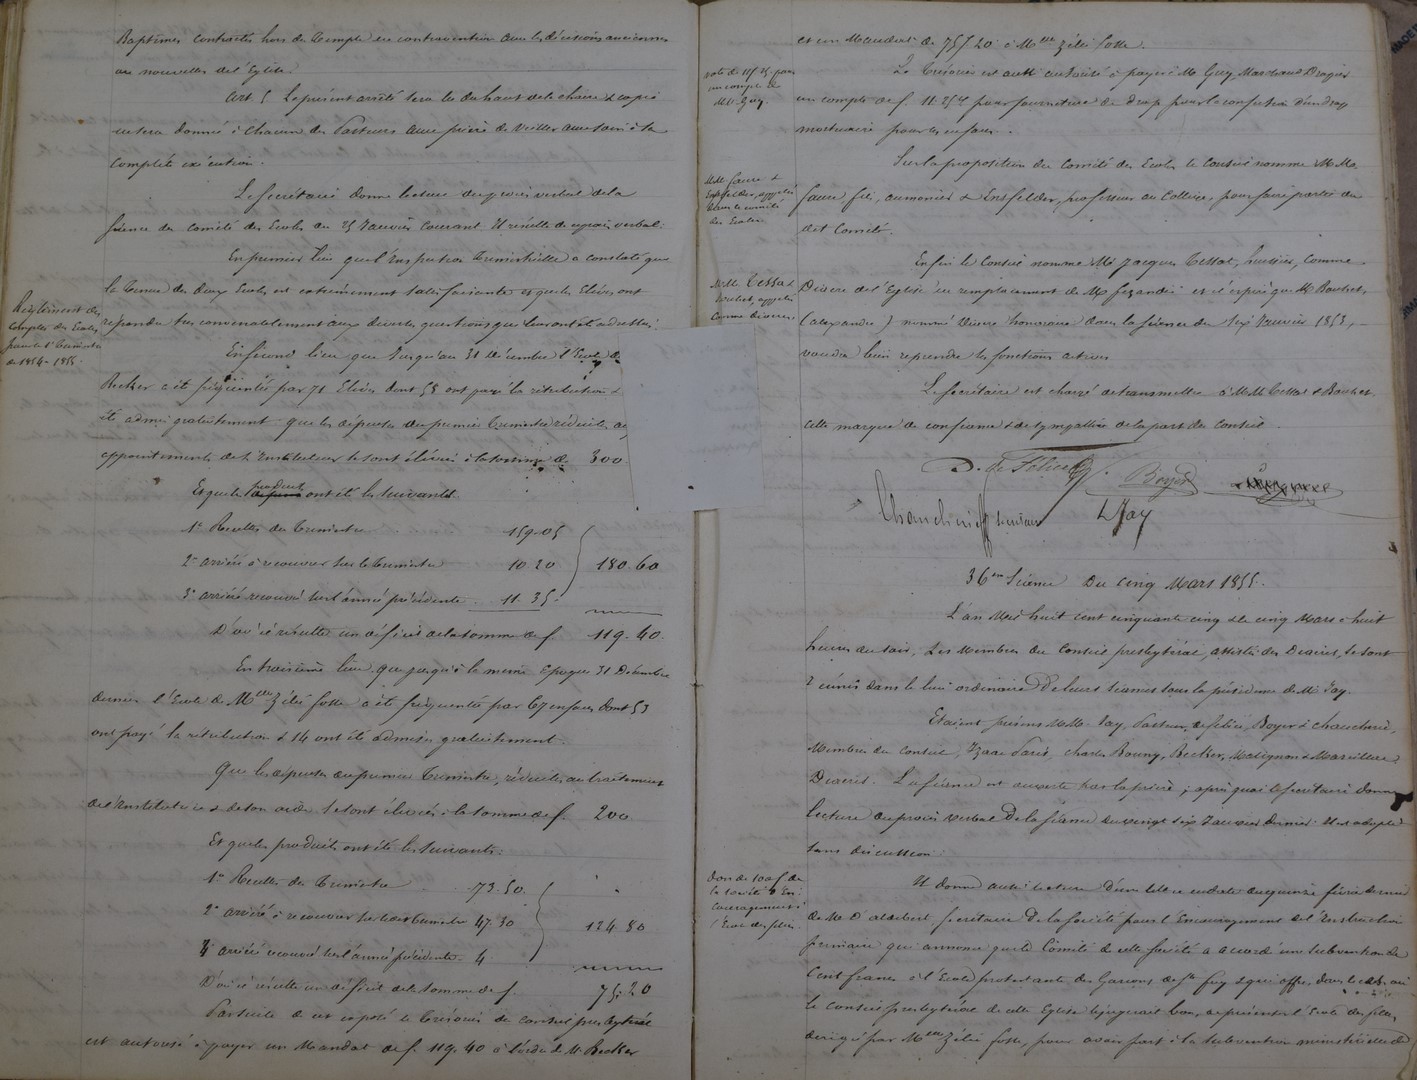 Baptêmes contractés hors du Temple en contravention avec les décisions anciennes
ou nouvelles de l'Eglise.
Art. 5. Le présent arrêté sera lu du haut de la chaire & copie
en sera donnée à chacun des Pasteurs avec prière de veiller avec soin à sa
complète exécution.
Le Secrétaire donne lecture du procès verbal de la
séance du Comité des Ecoles du 25 Janvier courant. Il résulte de ce procès verbal:
En premier lieu que l'Inspection Trimestrielle a constaté que
la tenue des deux Ecoles est extrêmement satisfaisante et que les Elèves ont
Règlement des
Comptes des Ecoles
pour le 1er Trimestre
de 1854-1855.
répondu très convenablement aux diverses questions que leur ont été adressées.
En second lieu que jusqu'au 31 décembre l'Ecole de
Becker a été fréquentée par 71 Elèves dont 58 ont payé la rétribution &
été admis gratuitement que les dépenses du premier Trimestre réduites au
appointements de l'Instituteur se sont élevées à la somme de 300
Et que les produits ont été les suivants.
1° Recettes du Trimestre 159.05
2° arriéré à recouvrer sur le Trimestre 10.20 180.60
3° arriéré recouvré sur l'année précédente 11.35
D'où il résulte un déficit de la somme de f. 119.40
En troisième lieu que jusqu'à la même Epoque 31 Décembre
dernier l'Ecole de Melle Zélie Fosse a été fréquentée par 67 enfans dont 53
ont payé la rétribution & 14 ont été admis gratuitement.
Que les dépenses du premier Trimestre, réduites au traitement
de l'Institutrice & de son aide se sont élevées à la somme de f. 200
Et que les produits ont été les suivants:
1° Recettes du Trimestre 73.50
2° arriéré à recouvrer sur le dit Trimestre 47.30 124.80
3° arriéré recouvré sur l'année précédente 4
D'où il résulte un déficit de la somme de f. 75.20
Par suite de cet exposé le Trésorier du Conseil presbytéral
est autorisé à payer un Mandat de f. 119.40 à l'ordre de M. Becker
et un Mandat de 75f 20 à Melle Zélie Fosse.
vote de 11f 25 pour
un compte à
Mr. Guy.
Le Trésorier est aussi autorisé à payer à Mr Guy, Marchand Drapier
un compte de f. 11.25 pour fourniture de drap pour la confection d'un drap
mortuaire pour les enfans.
Sur la proposition du Comité des Ecoles le Conseil nomme MM.
MM. Faure &
Ensfelder, appelés
dans le comité
des Ecoles
Faure fils, aumônier & Ensfelder, professeur au Collège, pour faire partie du
dit Comité.
Enfin le Conseil nomme Mr Jacques Tessat, huissier, comme
MM. Tessat &
Bouhet, appelés
comme diacres
Diacre de l'Eglise en remplacement de Mr et espère que Mr Bouhet
(alexandre) nommé Diacre honoraire dans la séance du six Janvier 1853,
voudra bien reprendre les fonctions actives.
Le Secrétaire est chargé de transmettre à MM. Tessat & Bouhet
cette marque de confiance & de sympathie de la part du Conseil.
D. de Félice Boyer
Chaucherie secrétaire L Jay
36me Séance Du cinq Mars 1855.
L'an Mil huit cent cinquante cinq & le cinq Mars à huit
heures du soir, Les Membres du Conseil presbytéral, assistés des Diacres, se sont
réunis dans le lieu ordinaire de leurs séances sous la présidence de Mr Jay.
Etaient présens MM. Jay, Pasteur, de Félice, Boyer & Chaucherie,
Membres du Conseil, Izaac Paris, Charles Bouny, Becker, Matignon & Marseilleau
Diacres. La séance est ouverte par la prière; après quoi le secrétaire donne
lecture du procès verbal de la séance du vingt six Janvier dernier. Il est adopté
sans discussion.
Don de 100f de
la société d'En-
couragement à
l'Ecole des filles.
Il donne aussi lecture d'une lettre en date du quinze février dernier
de Mr D'aldebert secrétaire de la Société pour l'Encouragement de l'Instruction
primaire qui annonce que le Comité de cette Société a accordé une subvention de
Cent francs à l'Ecole protestante des Garçons de Ste Foy & qui offre, dans le cas où
le conseil presbytéral de cette Eglise le jugerait bon, de présenter l'Ecole des filles,
dirigée par Melle Zélie Fosse, pour avoir part à la subvention ministérielle de